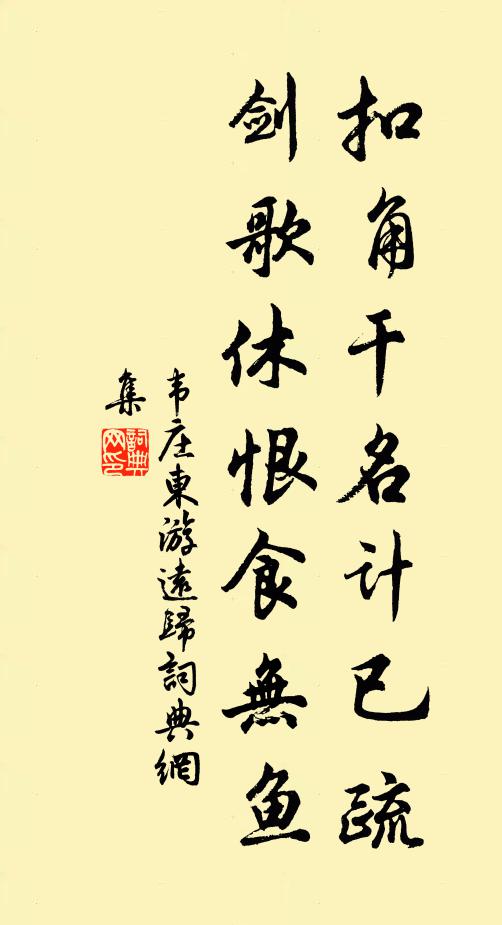 扣角干名计已疏
剑歌休恨食無鱼
韦庄東游遠歸詞典網
集
詞典网印